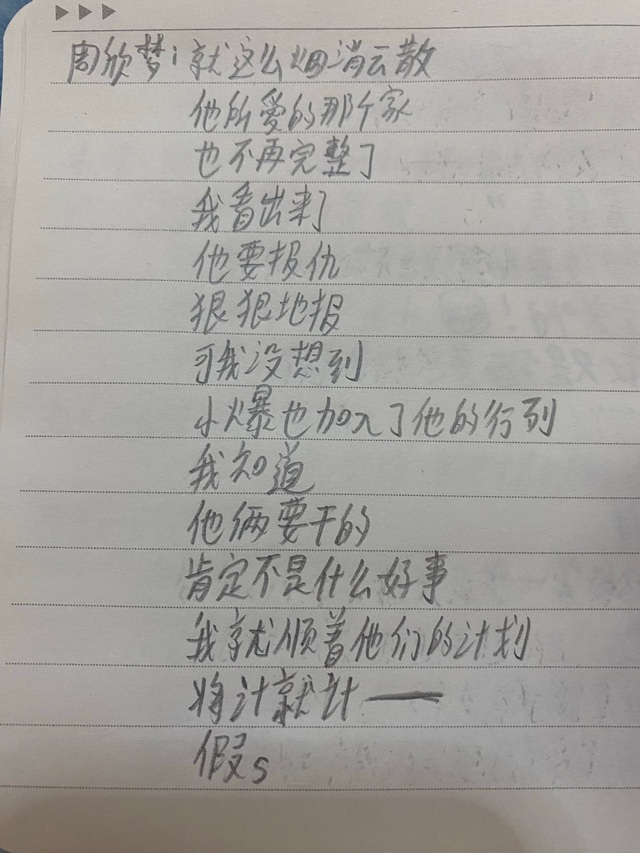 周欣梦:就这么烟消云散
他所爱的那个家
也不再完整了
我看出来了
他要报仇
狠狠地报
可我没想到
小爆也加入了他的行列
我知道
他俩要干的
肯定不是什么好事
我就顺着他们的计划
将计就计——
假s